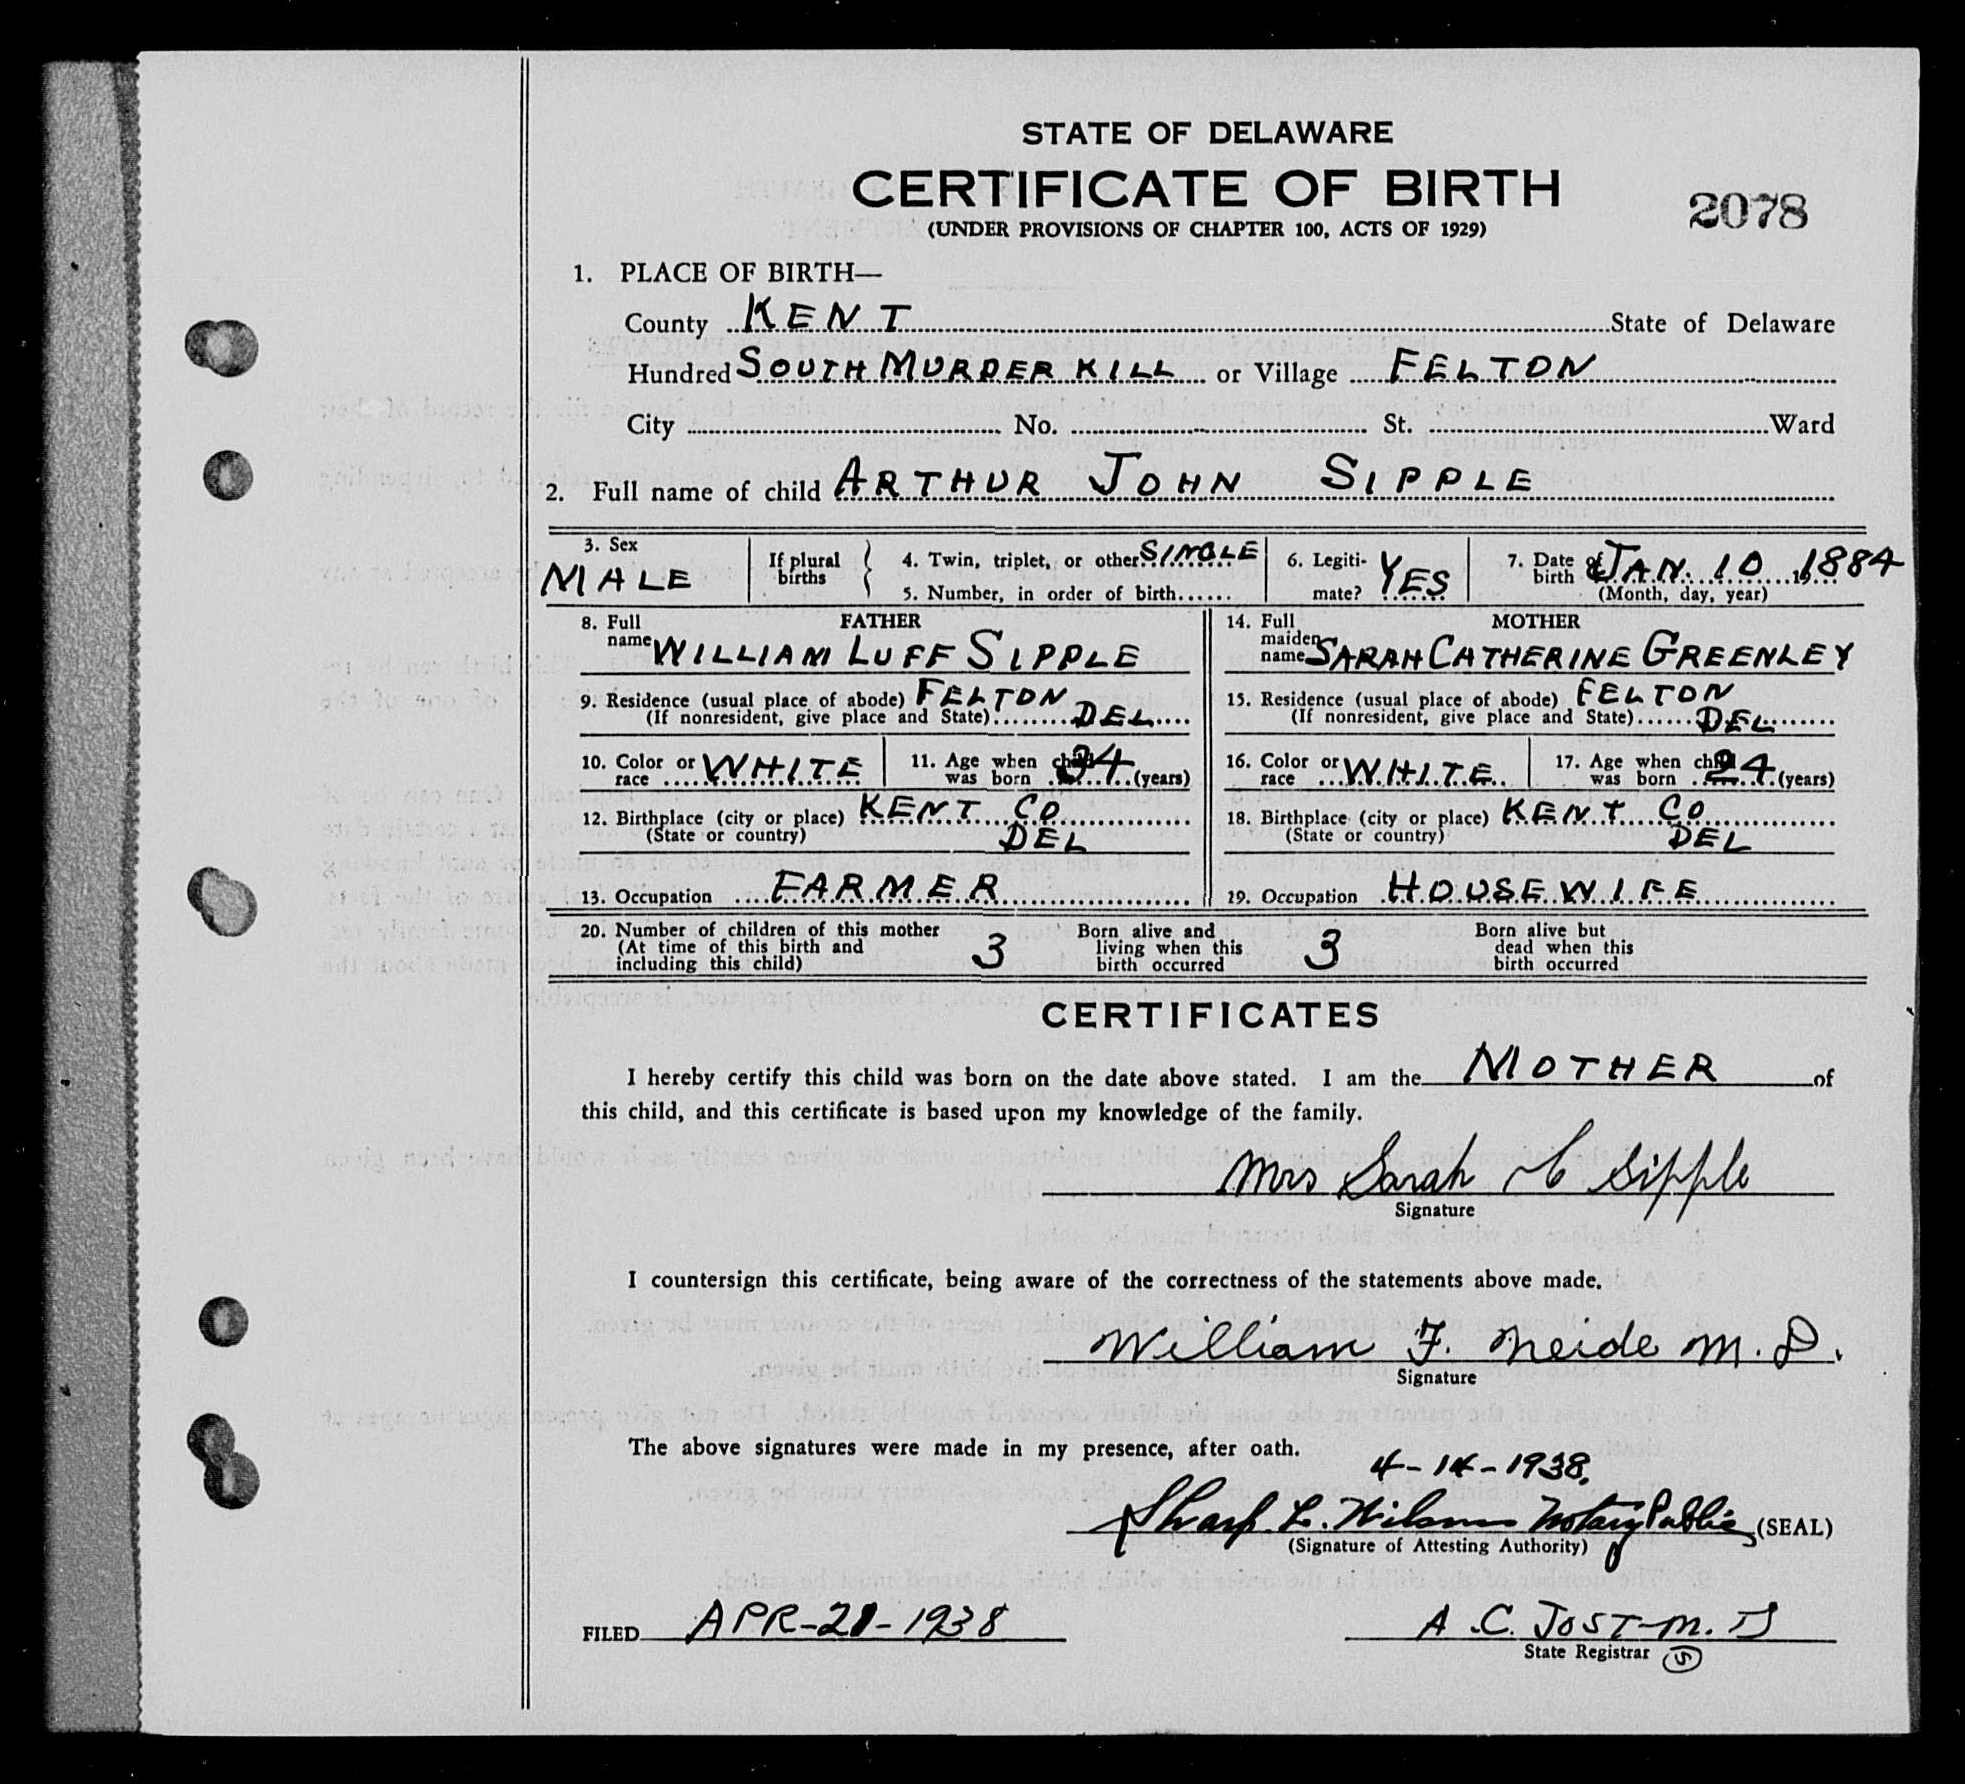 STATE OF DELAWARE
CERTIFICATE OF BIRTH
2078
(UNDER PROVISIONS OF CHAPTER 100, ACTS OF 1929)
1. PLACE OF BIRTH—
County KENT State of Delaware
Hundred SOUTH MURDERKILL or Village FELTON
City No. St. Ward
2. Full name of child ARTHUR JOHN SIPPLE
3. Sex MALE
If plural births
4. Twin, triplet, or other SINGLE
5. Number, in order of birth
6. Legitimate? YES
7. Date of birth JAN. 10 1884
(Month, day, year)
FATHER
8. Full name WILLIAM LUFF SIPPLE
9. Residence (usual place of abode) FELTON
(If nonresident, give place and State) DEL
10. Color or race WHITE
11. Age when child was born 34 (years)
12. Birthplace (city or place) KENT CO
(State or country) DEL
13. Occupation FARMER
MOTHER
14. Full maiden name SARAH CATHERINE GREENLEY
15. Residence (usual place of abode) FELTON
(If nonresident, give place and State) DEL
16. Color or race WHITE
17. Age when child was born 24 (years)
18. Birthplace (city or place) KENT CO
(State or country) DEL
19. Occupation HOUSEWIFE
20. Number of children of this mother
(At time of this birth and
including this child) 3
Born alive and
living when this
birth occurred 3
Born alive but
dead when this
birth occurred
CERTIFICATES
I hereby certify this child was born on the date above stated. I am the MOTHER of
this child, and this certificate is based upon my knowledge of the family.
Mrs Sarah C Sipple
Signature
I countersign this certificate, being aware of the correctness of the statements above made.
William F. Neide M.D.
Signature
The above signatures were made in my presence, after oath.
4-14-1938.
Sharp L. Wilson Notary Public (SEAL)
(Signature of Attesting Authority)
FILED APR-21-1938
A.C. JOST-M.D
State Registrar